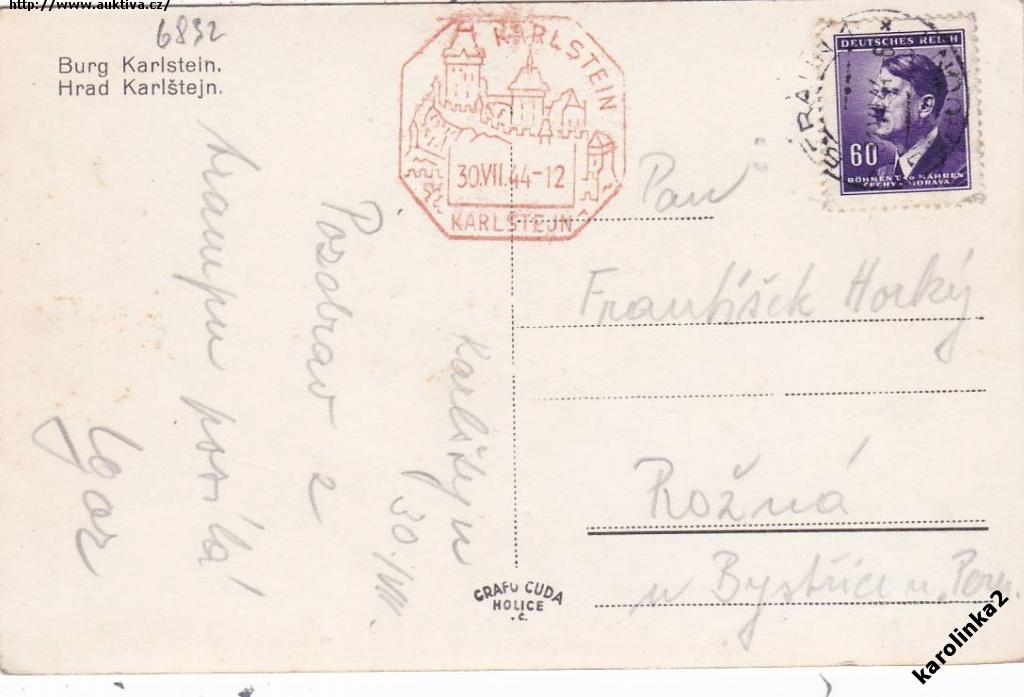 http://www.auktiva.cz/
6832
Burg Karlstein.
Hrad Karlštejn.
KARLSTEIN
30.VII.44-12
KARLŠTEJN
DEUTSCHES REICH
60
BÖHMEN u. MÄHREN
ČECHY a MORAVA
Karlštejn 30./VII.
Pozdrav z
posílá
Pan
František Horký
Rožná
u Bystřice n. Pern.
GRAFO ČUDA
HOLICE
v.Č.
karolinka2